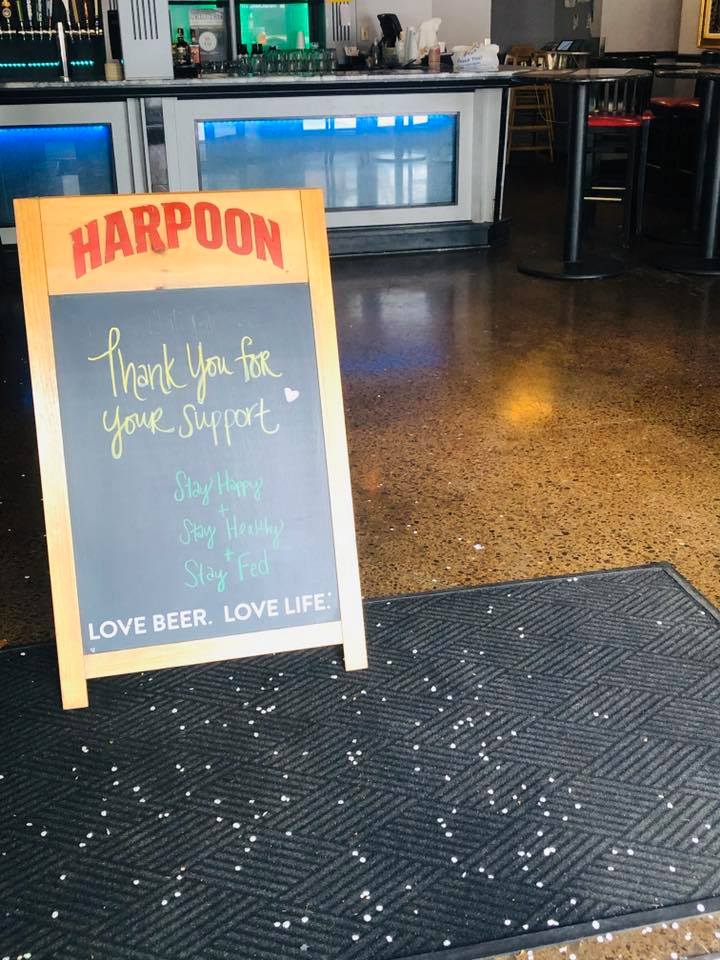 HARPOON
Thank You for
your support
Stay Happy
+
Stay Healthy
+
Stay Fed
LOVE BEER. LOVE LIFE.